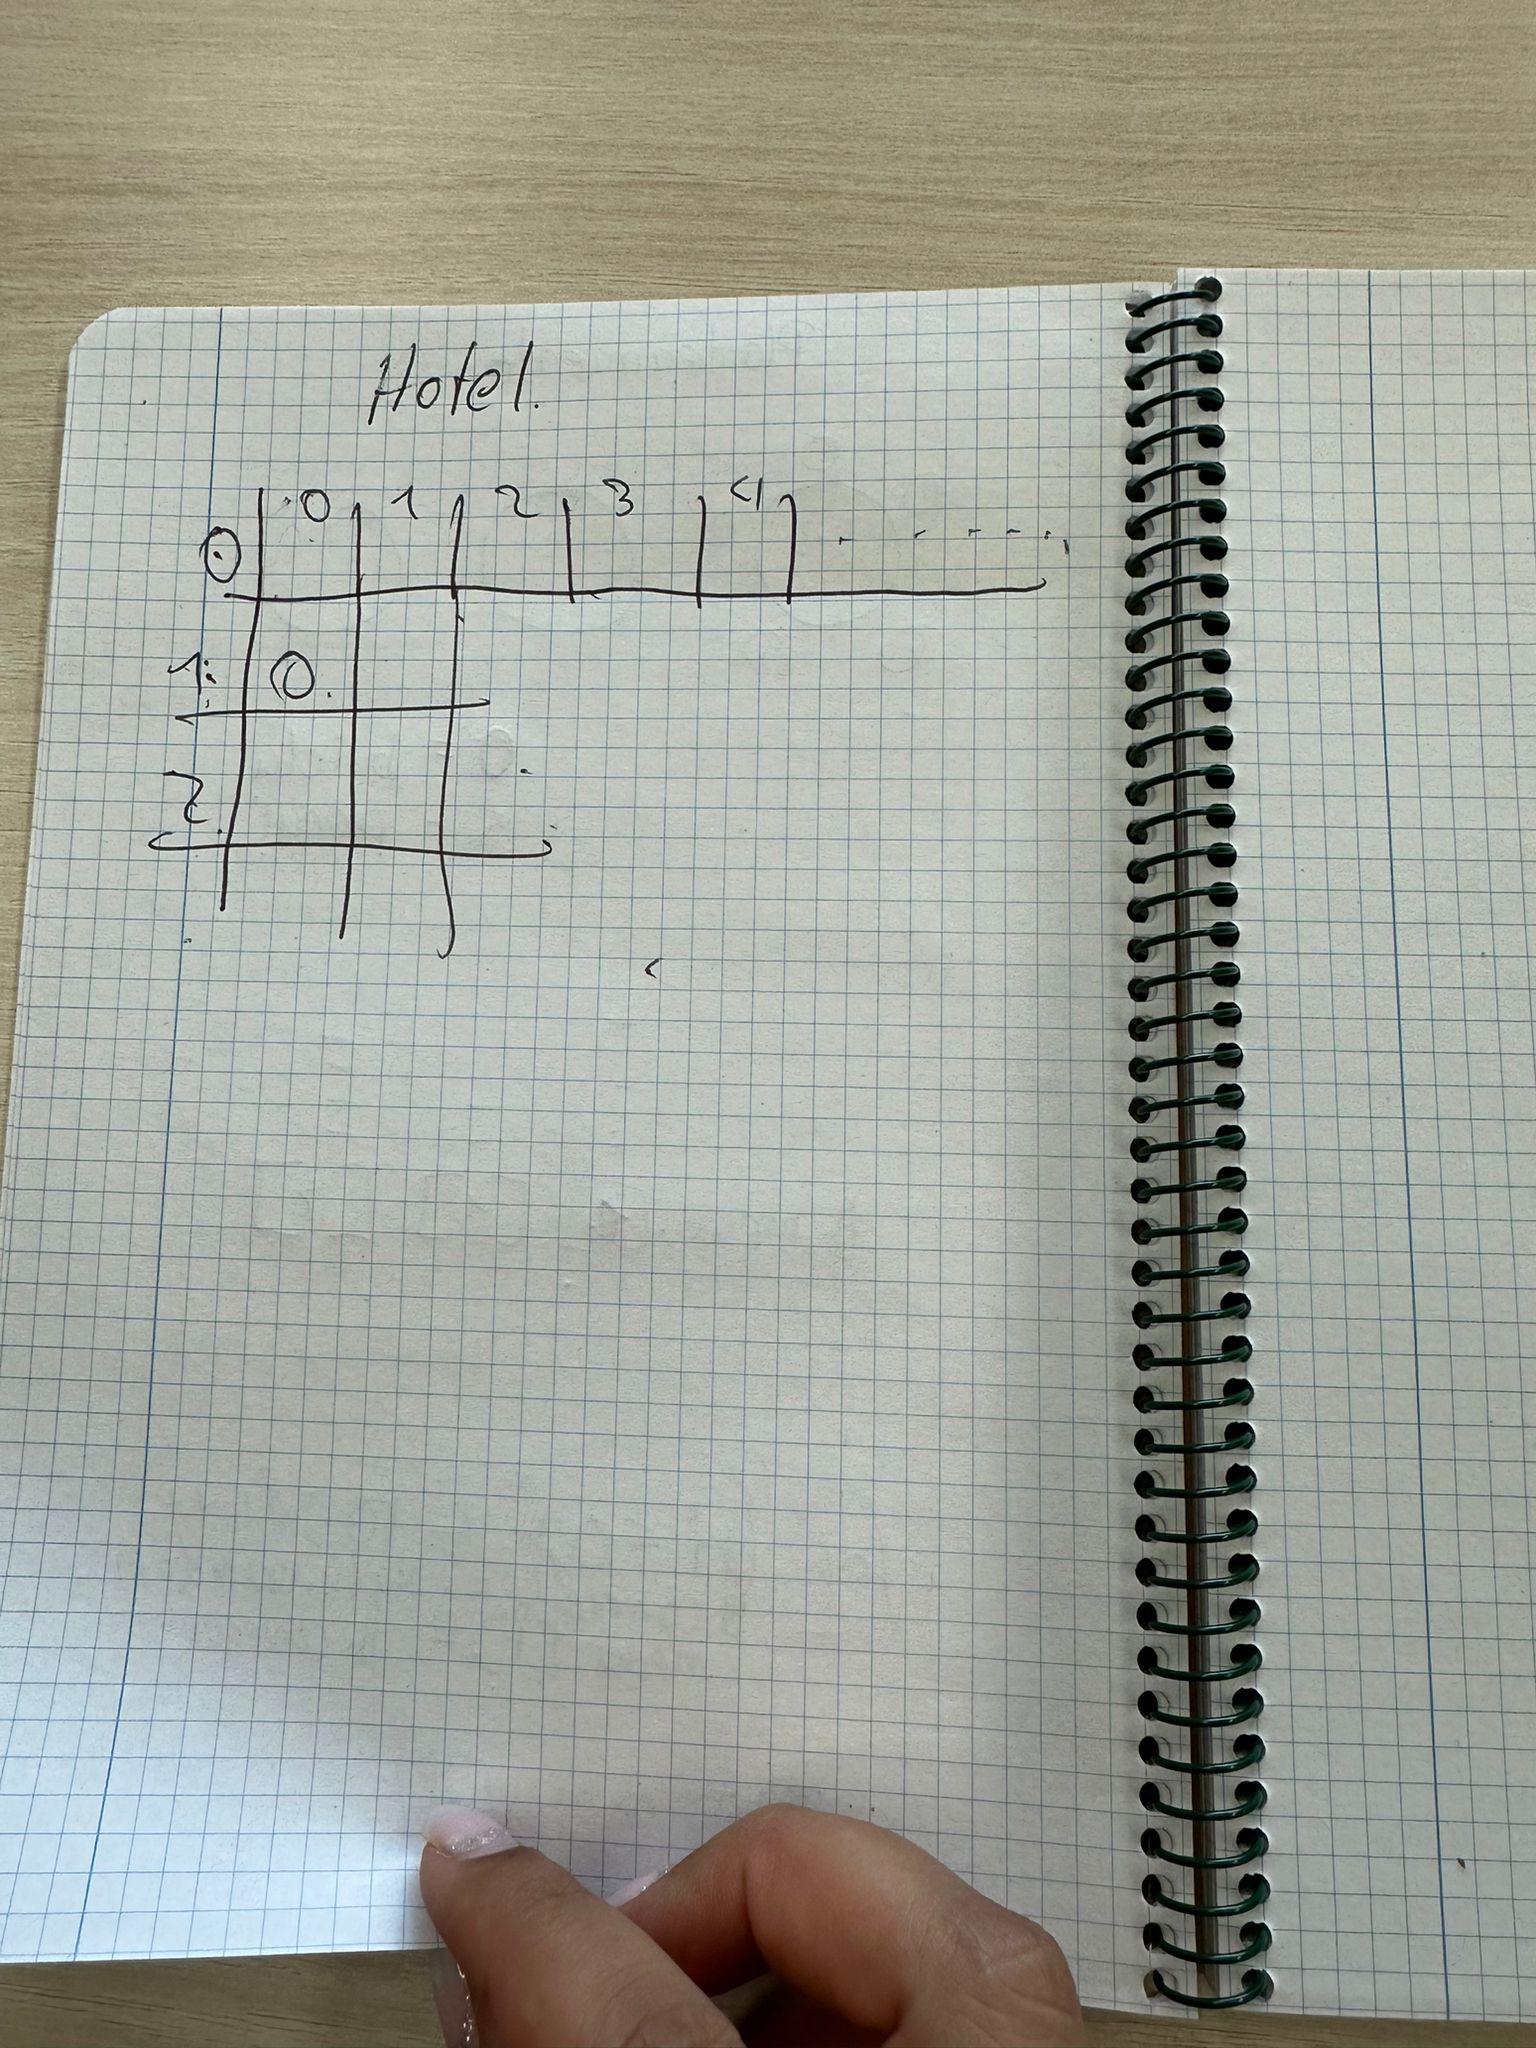 Hotel.
0 1 2 3 4 . . . . . .
0
1: 0.
2.